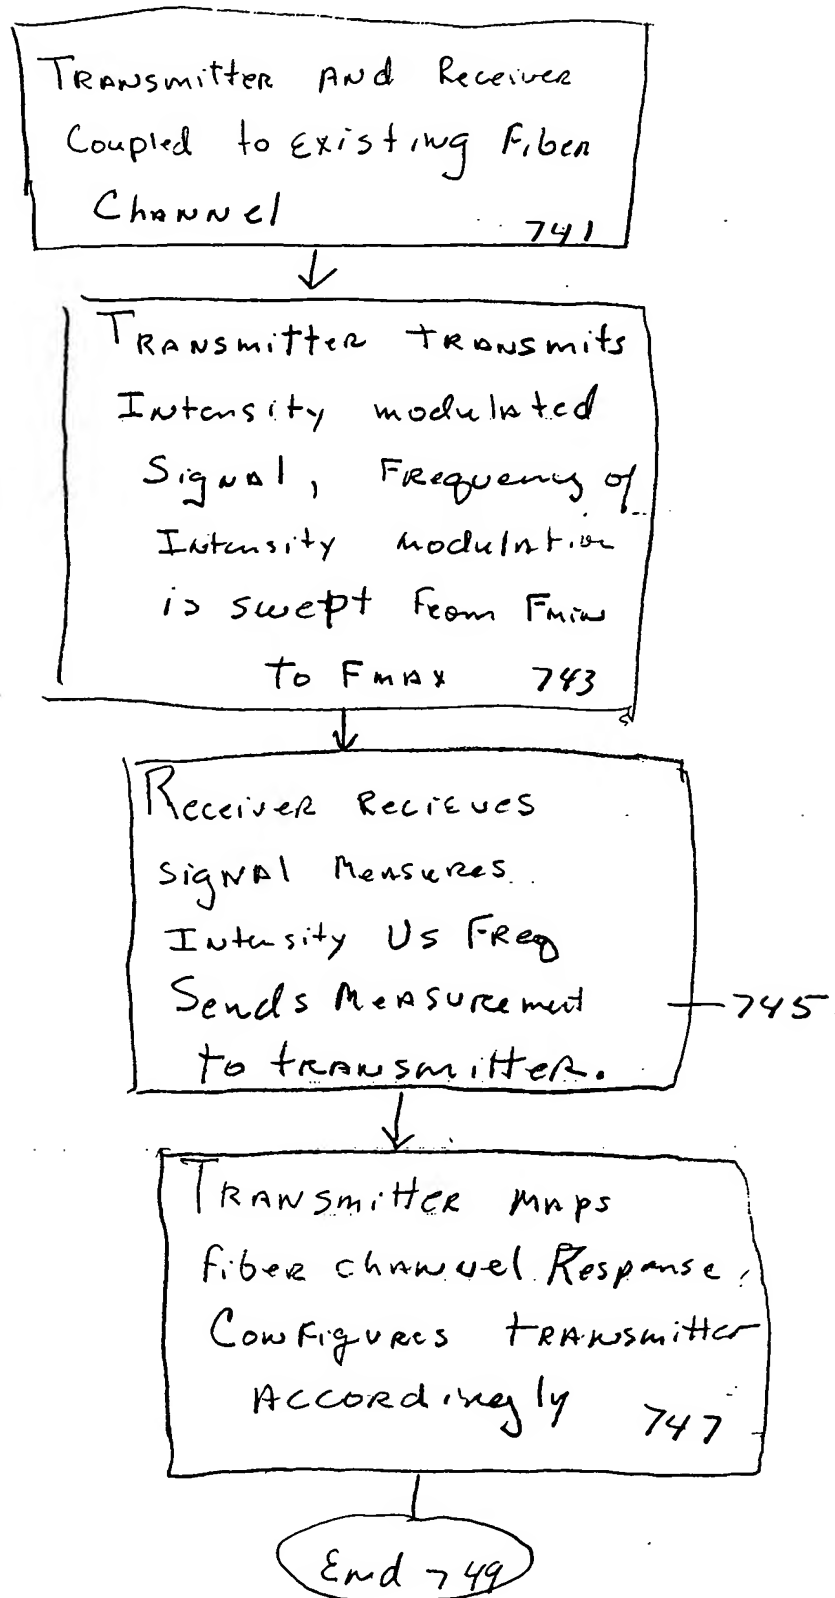 Transmitter and Receiver
Coupled to Existing Fiber
Channel 741
Transmitter transmits
Intensity modulated
Signal, Frequency of
Intensity modulation
is swept From Fmin
to Fmax 743
Receiver Recieves
signal Measures
Intensity Vs Freq
Sends Measurement 745
to transmitter.
Transmitter maps
fiber channel Response,
Configures transmitter
Accordingly 747
End 749